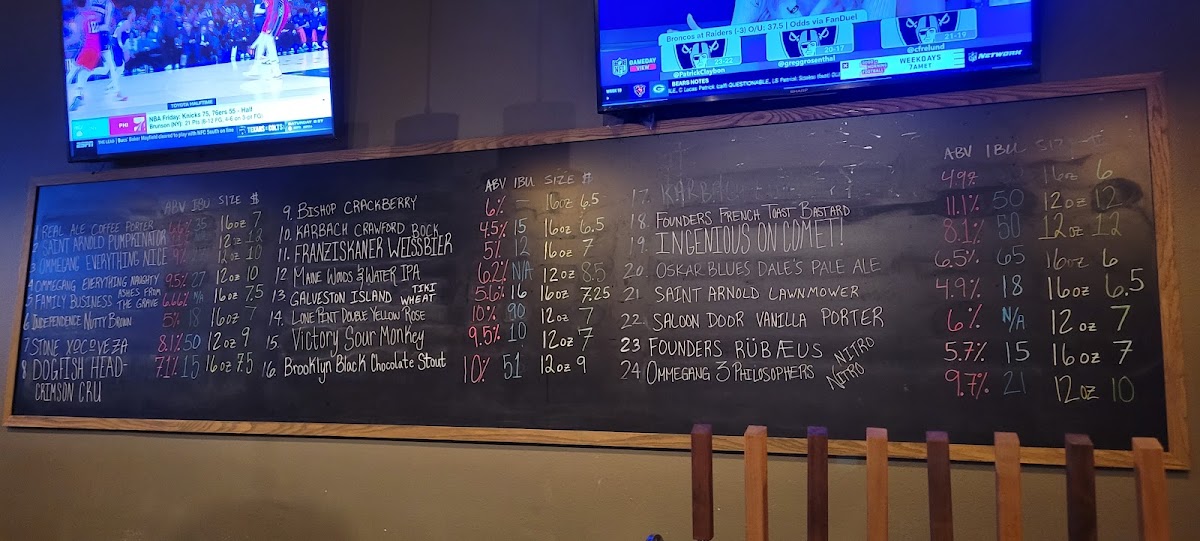 TOYOTA HALFTIME
NBA Friday: Knicks 75, 76ers 55 - Half
Brunson (NY): 21 Pts (8-13 FG, 4-6 on 3-pt FG)
PHI
ESPN
Baker Mayfield cleared to play with NFC South on line
TEXANS COLTS
Broncos at Raiders (-3) O/U: 37.5 | Odds via FanDuel
NFL GAMEDAY VIEW
@PatrickClaybon
20-17
@greggrosenthal
21-19
@cfrelund
WEEKDAYS
7AM ET
NFL NETWORK
BEARS NOTES
ABV IBU SIZE $
1 REAL ALE COFFEE PORTER 35 16oz 7
2 SAINT ARNOLD PUMPKINATOR 12oz 12
3 OMMEGANG EVERYTHING NICE 12oz 10
4 OMMEGANG EVERYTHING NAUGHTY 9.5% 27 12oz 10
5 FAMILY BUSINESS ASHES FROM THE GRAVE 6.66% N/A 16oz 7.5
6 INDEPENDENCE NUTTY BROWN 5% 18 16oz 7
7 STONE XOCOVEZA 8.1% 50 12oz 9
8 DOGFISH HEAD- 7.1% 15 16oz 7.5
CRIMSON CRU
ABV IBU SIZE $
9. BISHOP CRACKBERRY 6% – 16oz 6.5
10. KARBACH CRAWFORD BOCK 4.5% 15 16oz 6.5
11. FRANZISKANER WEISSBIER 5% 12 16oz 7
12 MAINE WOODS & WATER IPA 6.2% N/A 12oz 8.5
13 GALVESTON ISLAND TIKI WHEAT 5.6% 16 16oz 7.25
14. LONE PINT DOUBLE YELLOW ROSE 10% 90 12oz 7
15. VICTORY SOUR MONKEY 9.5% 10 12oz 7
16. Brooklyn Black Chocolate Stout 10% 51 12oz 9
ABV IBU SIZE $
17. KARBACH 4.9% 16oz 6
18. FOUNDERS FRENCH TOAST BASTARD 11.1% 50 12oz 12
19. INGENIOUS ON COMET! 8.1% 50 12oz 12
20. OSKAR BLUES DALE'S PALE ALE 6.5% 65 16oz 6
21. SAINT ARNOLD LAWNMOWER 4.9% 18 16oz 6.5
22. SALOON DOOR VANILLA PORTER 6% N/A 12oz 7
23 FOUNDERS RÜBÆUS NITRO 5.7% 15 16oz 7
24 OMMEGANG 3 PHILOSOPHERS NITRO 9.7% 21 12oz 10